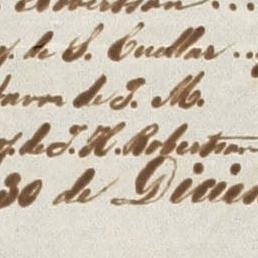 Robertson ...
de S. Cuellar ...
favor de J. M.
de J. H. Robertson
30 de Dicie